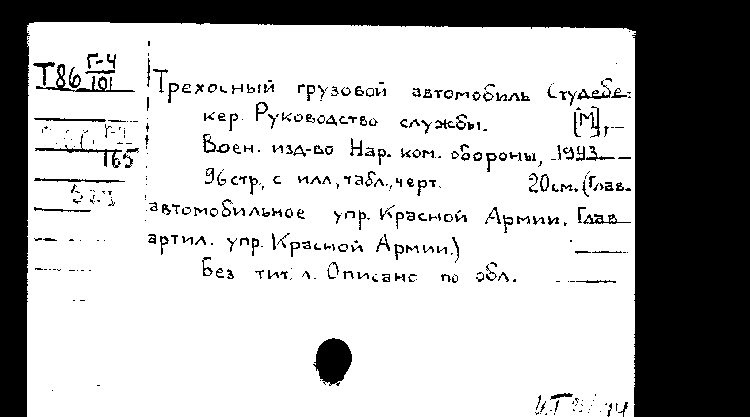 Т86 Г-4/101
Трехосный грузовой автомобиль Студебе-
кер. Руководство службы. [М],
Воен. изд-во Нар. ком. обороны, 1943.
165
96стр., с илл., табл., черт. 20см. (Глав.
автомобильное упр. Красной Армии. Глав
артил. упр. Красной Армии.)
Без тит. л. Описано по обл.